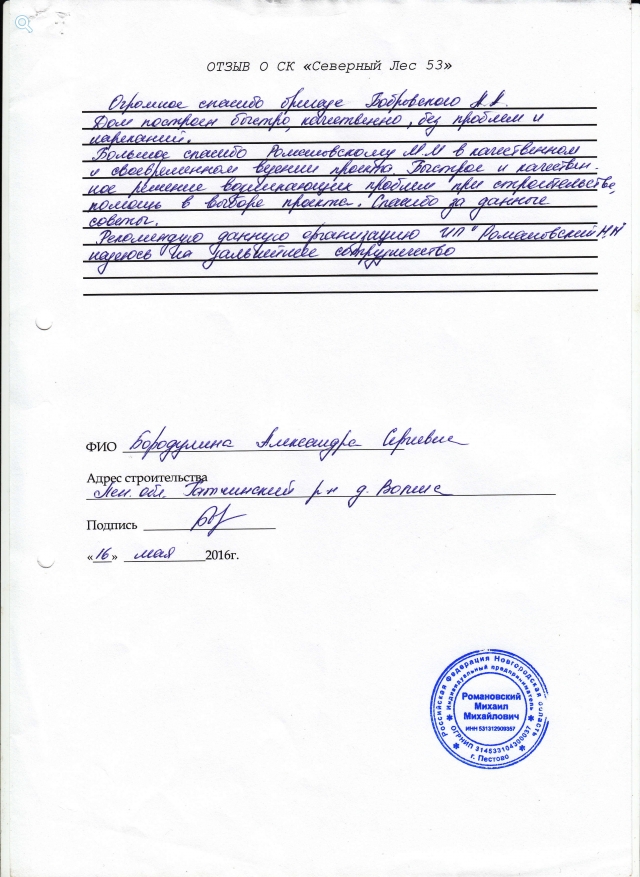 ОТЗЫВ О СК «Северный Лес 53»
Огромное спасибо бригаде Бобровского А.А.
Дом построен быстро, качественно, без проблем и
нареканий.
Большое спасибо Романовскому М.М в качественном
и своевременном ведении проекта Быстрое и качествен-
ное решение возникающих проблем при строительстве,
помощь в выборе проекта. Спасибо за данные
советы.
Рекомендую данную организацию ИП "Романовский
надеюсь на дальнейшее сотрудничество
ФИО Бородулина Александра Сергиевна
Адрес строительства
Лен. обл. Гатчинский р-н д. Вопша
Подпись
«16» мая 2016г.
Российская Федерация Новгородская область
Индивидуальный предприниматель
Романовский
Михаил
Михайлович
ИНН 531312909357
ОГРНИП 314533104300037
г. Пестово